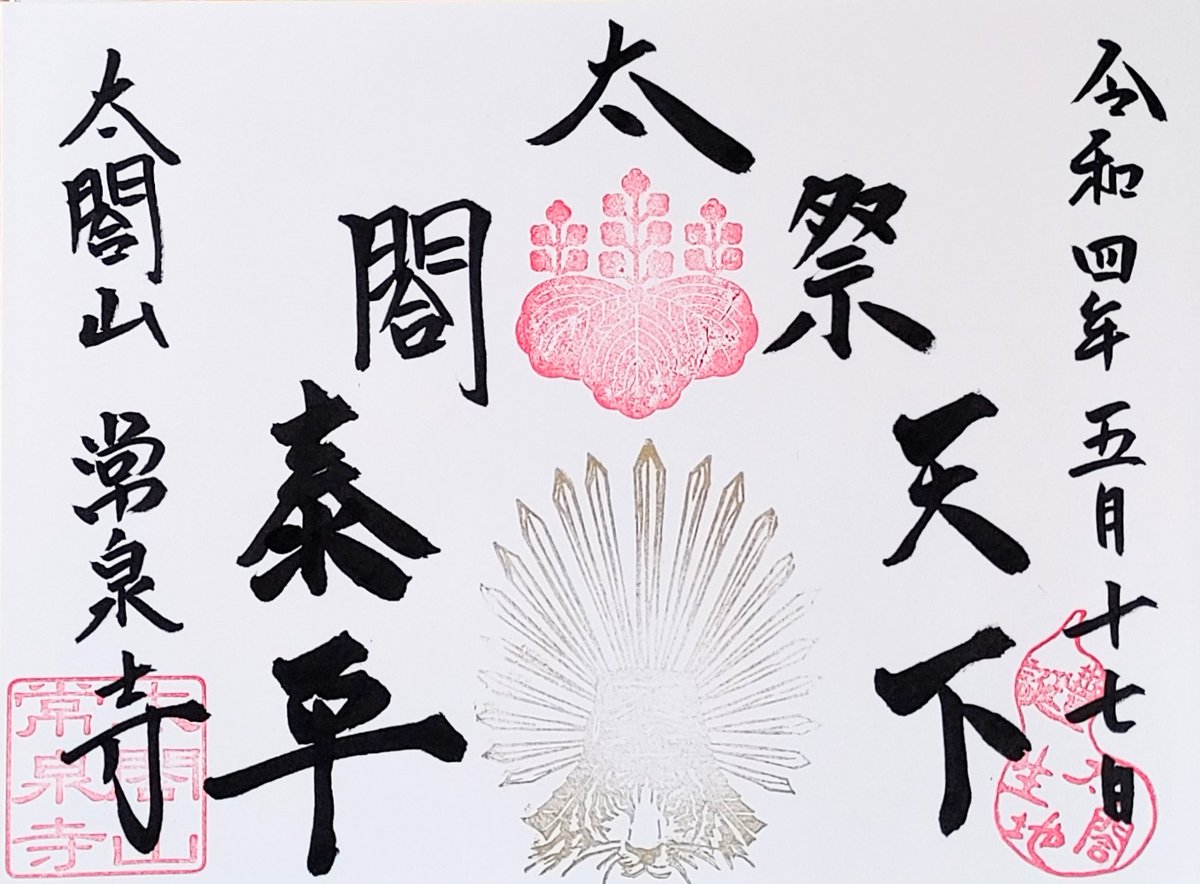 令和四年五月十七日
太閤祭
天下
泰平
太閤山 常泉寺
太閤山
常泉寺
太閤
誕生地